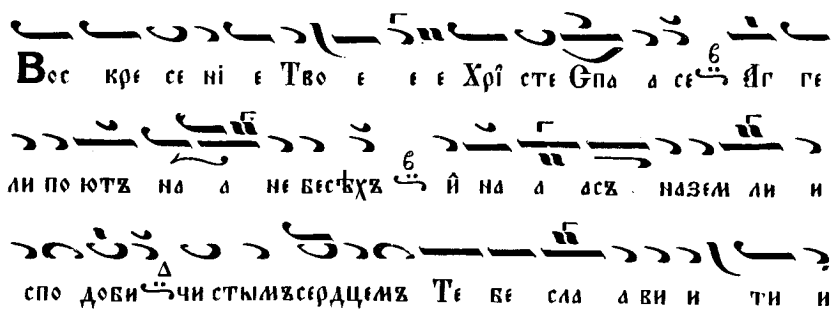 Вос кре се ні е Тво е е е Хрі сте Спа а се Аг ге
ли по ютъ на а не бесѣхъ и на а асъ назем ли и
спо доби чи стымъсердцемъ Те бе сла а ви и ти и